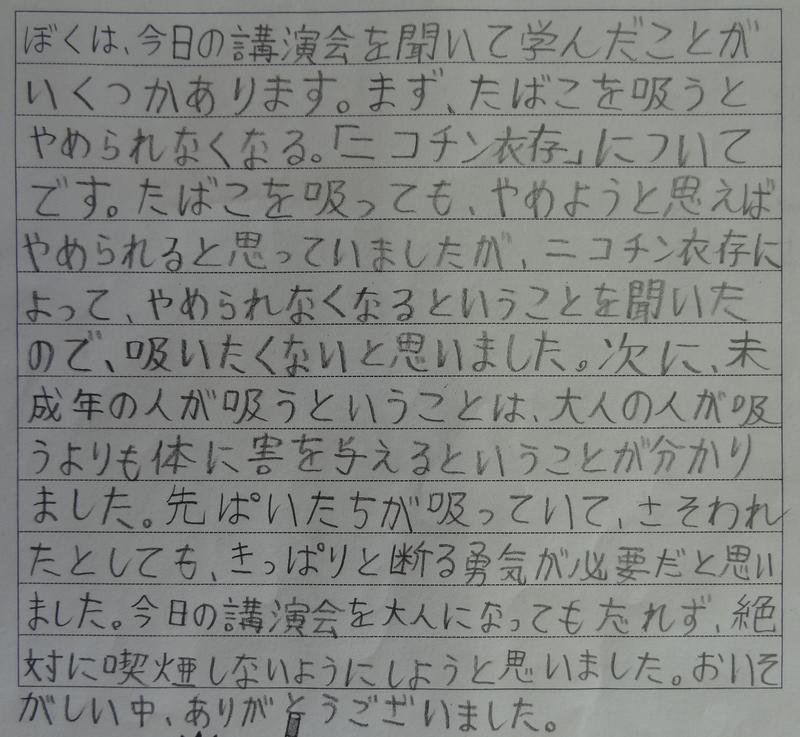 ぼくは、今日の講演会を聞いて学んだことが
いくつかあります。まず、たばこを吸うと
やめられなくなる。「ニコチン衣存」について
です。たばこを吸っても、やめようと思えば
やめられると思っていましたが、ニコチン衣存に
よって、やめられなくなるということを聞いた
ので、吸いたくないと思いました。次に、未
成年の人が吸うということは、大人の人が吸
うよりも体に害を与えるということが分かり
ました。先ぱいたちが吸っていて、さそわれ
たとしても、きっぱりと断る勇気が必要だと思い
ました。今日の講演会を大人になっても忘れず、絶
対に喫煙しないようにしようと思いました。おいそ
がしい中、ありがとうございました。